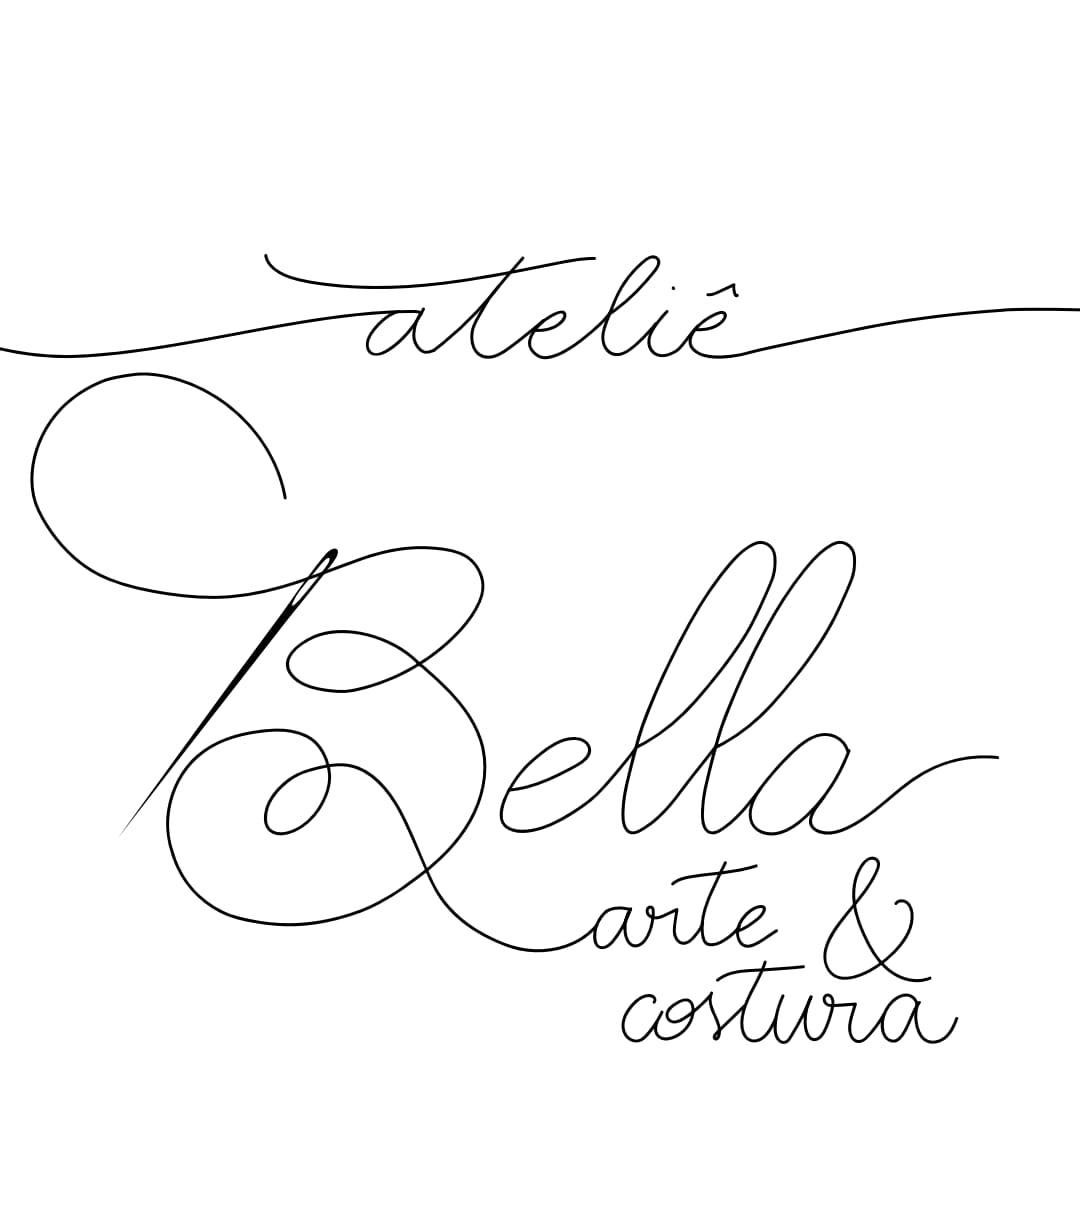 ateliê
Bella
arte &
costura